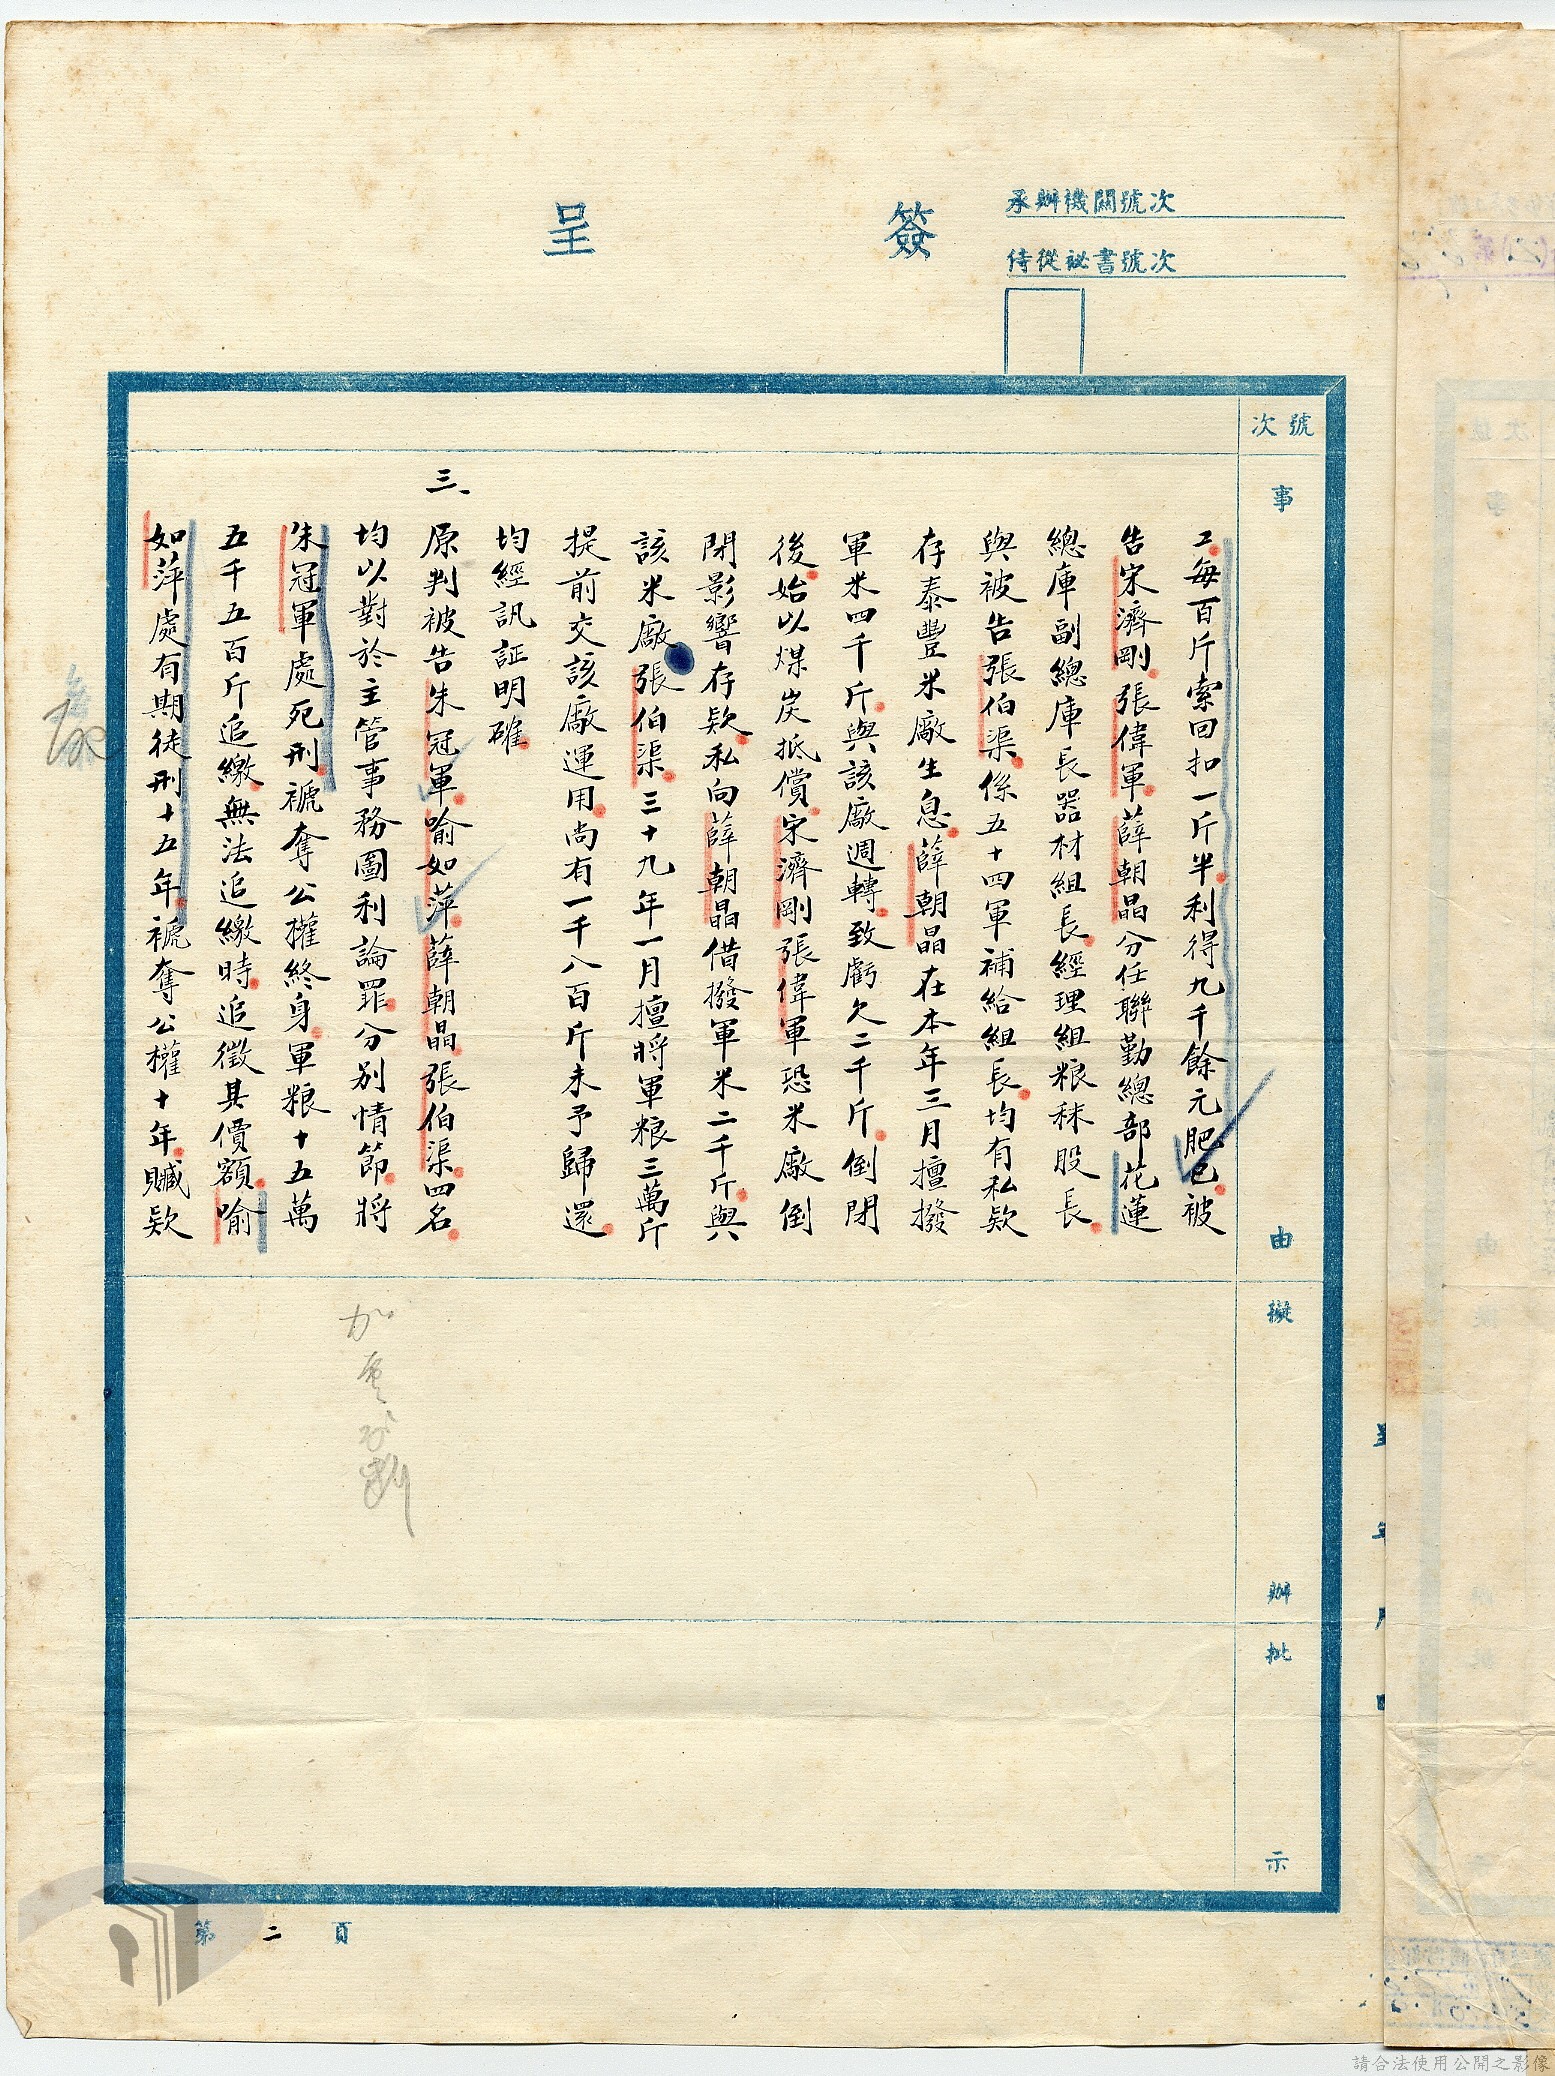 簽呈
承辦機關號次
侍從祕書號次
號次
事由
擬辦
批示
工每百斤索回扣一斤半利得九千餘元肥已被
告宋濟剛張偉軍薛朝晶分任聯勤總部花蓮
總庫副總庫長器材組長經理組粮秣股長
與被告張伯渠係五十四軍補給組長均有私欵
存泰豐米廠生息薛朝晶在本年三月擅撥
軍米四千斤與該廠週轉致虧欠二千斤倒閉
後始以煤炭抵償宋濟剛張偉軍恐米廠倒
閉影響存欵私向薛朝晶借撥軍米二千斤與
該米廠張伯渠三十九年一月擅將軍粮三萬斤
提前交該廠運用尚有一千八百斤未予歸還
均經訊証明確
三、原判被告朱冠軍喻如萍薛朝晶張伯渠四名
均以對於主管事務圖利論罪分別情節將
朱冠軍處死刑褫奪公權終身軍粮十五萬
五千五百斤追繳無法追繳時追徵其價額喻
如萍處有期徒刑十五年褫奪公權十年贓欵
第二頁
請合法使用公開之影像